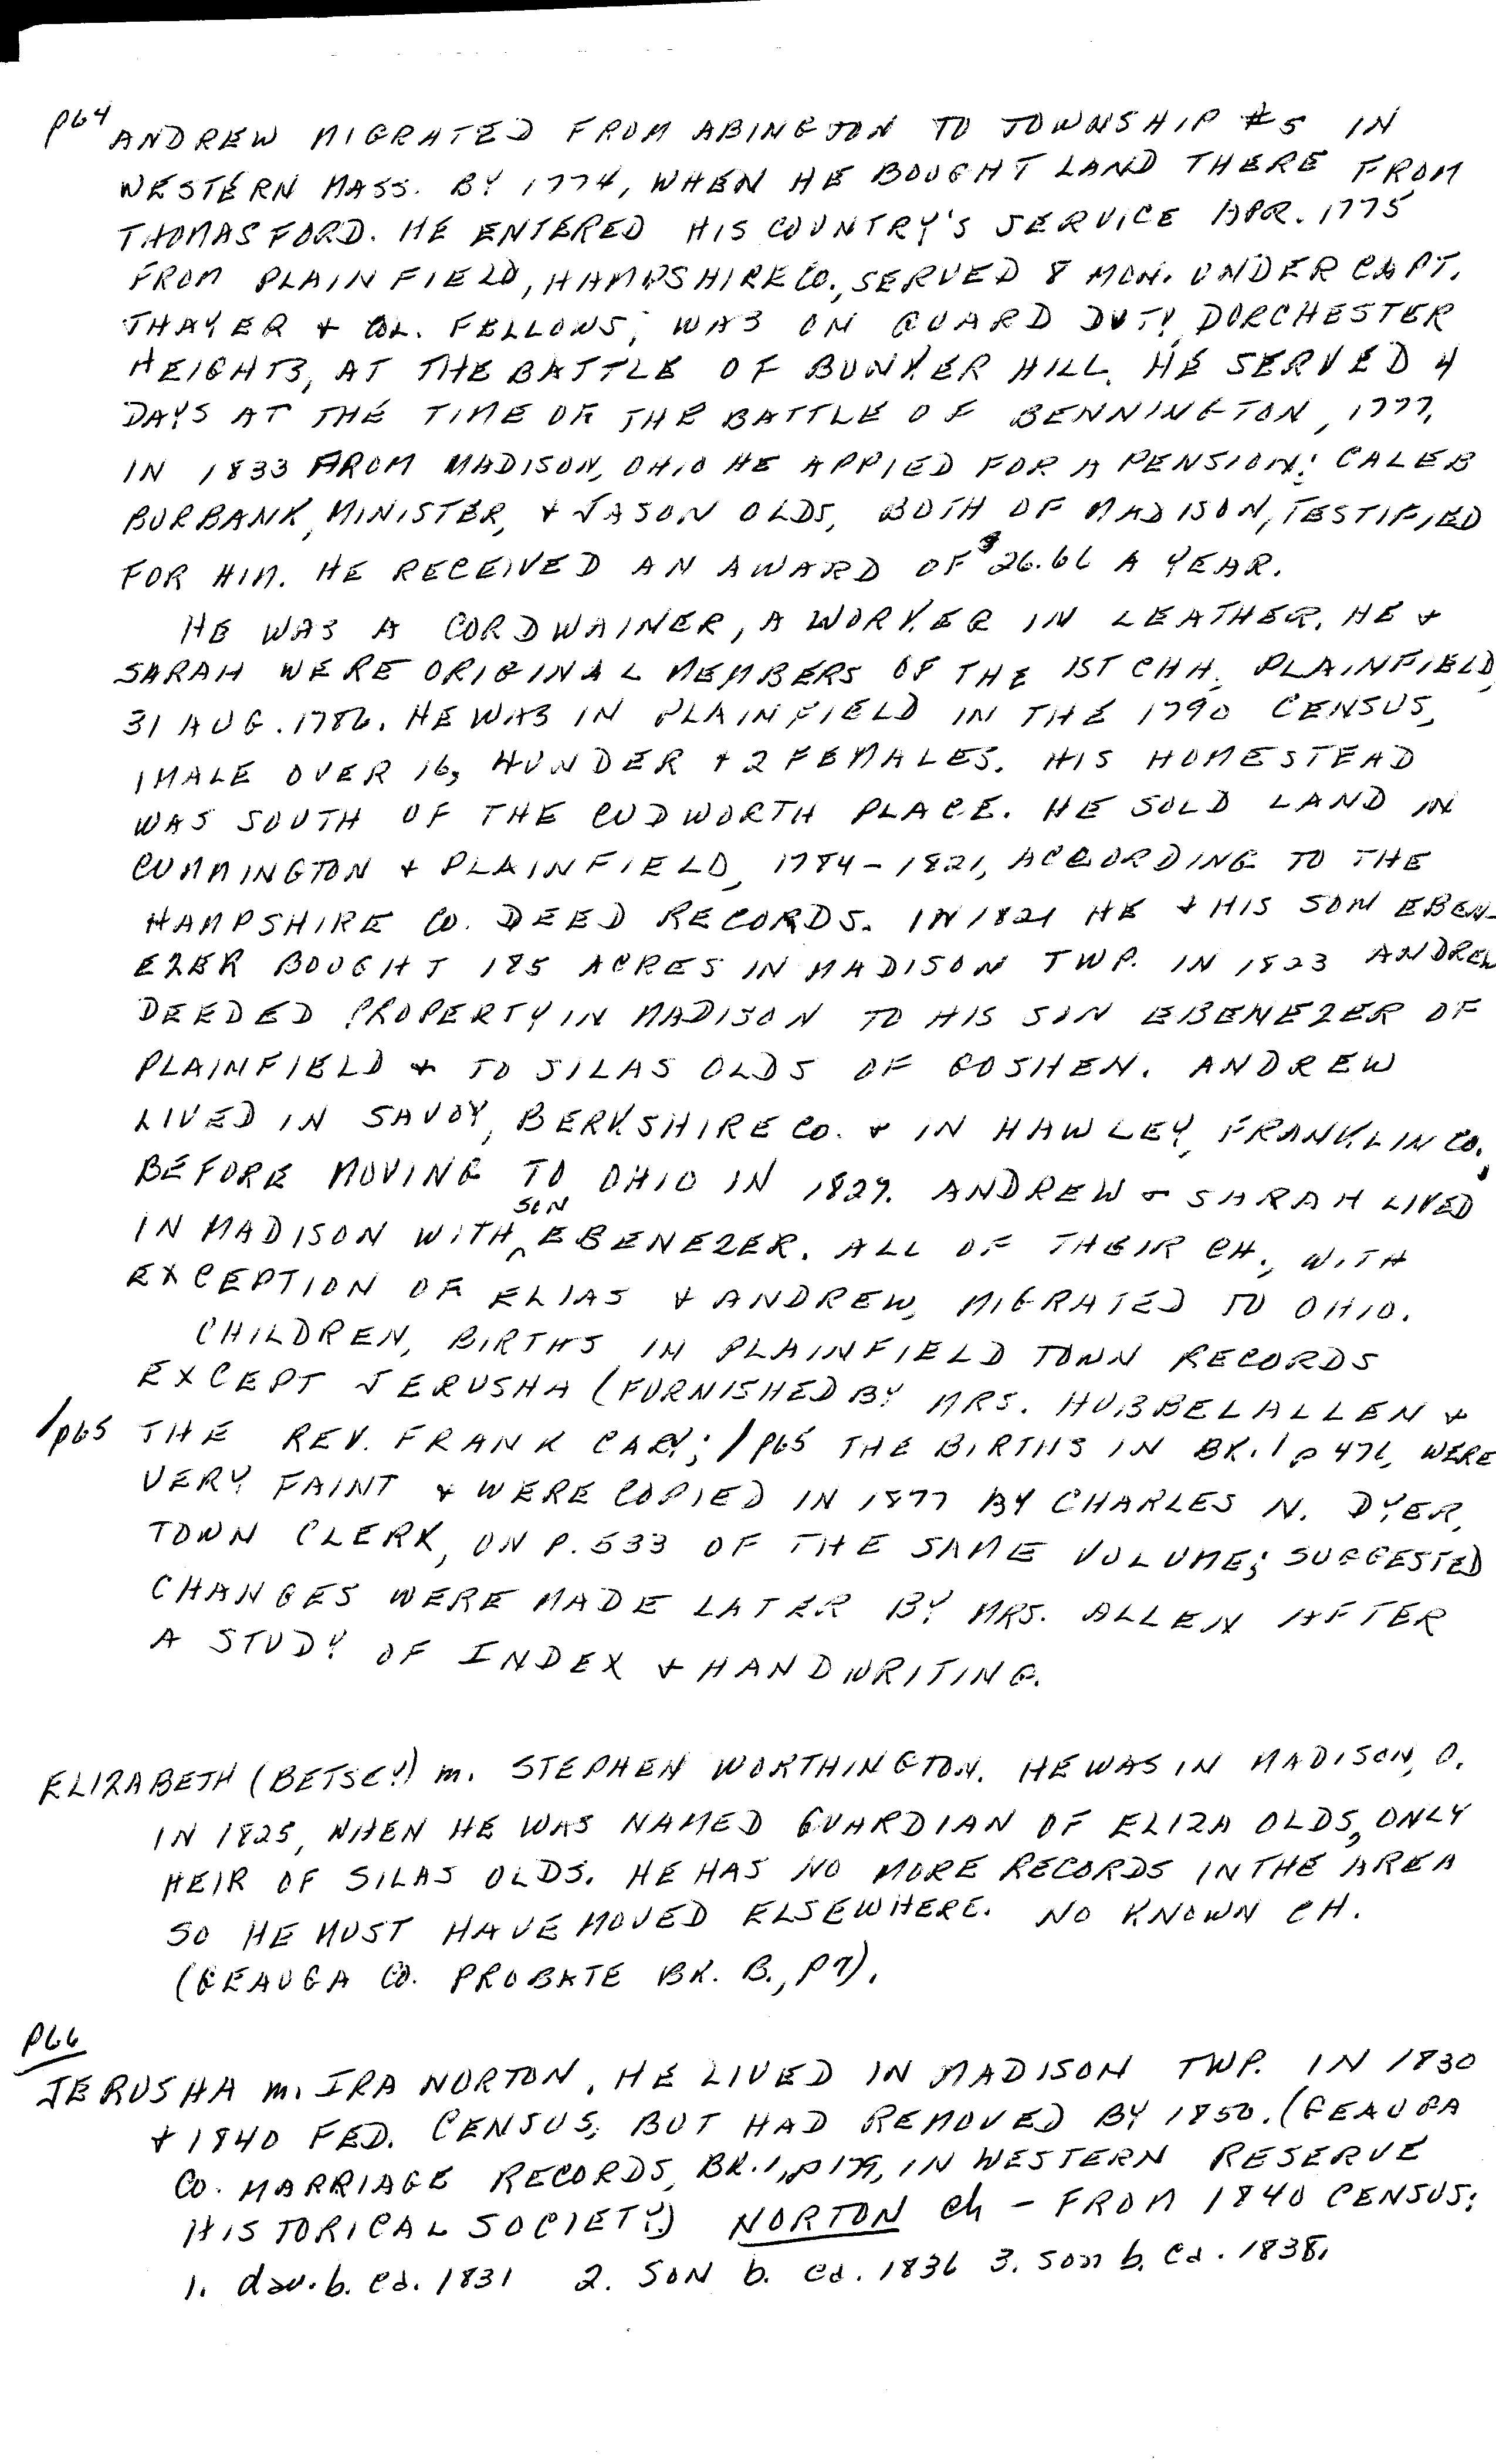 p64 ANDREW MIGRATED FROM ABINGTON TO TOWNSHIP #5 IN
WESTERN MASS. BY 1774, WHEN HE BOUGHT LAND THERE FROM
THOMAS FORD. HE ENTERED HIS COUNTRY'S SERVICE APR. 1775
FROM PLAINFIELD, HAMPSHIRE CO., SERVED 8 MON. UNDER CAPT.
THAYER + COL. FELLOWS; WAS ON GUARD DUTY, DORCHESTER
HEIGHTS, AT THE BATTLE OF BUNKER HILL. HE SERVED 4
DAYS AT THE TIME OF THE BATTLE OF BENNINGTON, 1777.
IN 1833 FROM MADISON, OHIO HE APPIED FOR A PENSION; CALEB
BURBANK, MINISTER, + JASON OLDS, BOTH OF MADISON, TESTIFIED
FOR HIM. HE RECEIVED AN AWARD OF $26.66 A YEAR.
HE WAS A CORDWAINER, A WORKER IN LEATHER. HE +
SARAH WERE ORIGINAL MEMBERS OF THE 1ST CHH. PLAINFIELD,
31 AUG. 1786. HE WAS IN PLAINFIELD IN THE 1790 CENSUS,
1 MALE OVER 16, 4 UNDER + 2 FEMALES. HIS HOMESTEAD
WAS SOUTH OF THE CUDWORTH PLACE. HE SOLD LAND IN
CUMMINGTON + PLAINFIELD, 1784-1821, ACCORDING TO THE
HAMPSHIRE CO. DEED RECORDS. IN 1821 HE + HIS SON EBEN-
EZER BOUGHT 185 ACRES IN MADISON TWP. IN 1823 ANDREW
DEEDED PROPERTY IN MADISON TO HIS SON EBENEZER OF
PLAINFIELD + TO SILAS OLDS OF GOSHEN. ANDREW
LIVED IN SAVOY, BERKSHIRE CO. + IN HAWLEY, FRANKLIN CO.,
BEFORE MOVING TO OHIO IN 1829. ANDREW + SARAH LIVED
IN MADISON WITH SON EBENEZER. ALL OF THEIR CH., WITH
EXCEPTION OF ELIAS + ANDREW, MIGRATED TO OHIO.
CHILDREN, BIRTHS IN PLAINFIELD TOWN RECORDS
EXCEPT JERUSHA (FURNISHED BY MRS. HUBBEL ALLEN +
/p65 THE REV. FRANK CARY; /p65 THE BIRTHS IN BK. 1 p 476, WERE
VERY FAINT + WERE COPIED IN 1877 BY CHARLES N. DYER,
TOWN CLERK, ON P. 533 OF THE SAME VOLUME; SUGGESTED
CHANGES WERE MADE LATER BY MRS. ALLEN AFTER
A STUDY OF INDEX + HANDWRITING.
ELIZABETH (BETSEY) m. STEPHEN WORTHINGTON. HE WAS IN MADISON, O.
IN 1825, WHEN HE WAS NAMED GUARDIAN OF ELIZA OLDS, ONLY
HEIR OF SILAS OLDS. HE HAS NO MORE RECORDS IN THE AREA
SO HE MUST HAVE MOVED ELSEWHERE. NO KNOWN CH.
(GEAUGA CO. PROBATE BK. B., p 7).
p66
JERUSHA m. IRA NORTON. HE LIVED IN MADISON TWP. IN 1830
+ 1840 FED. CENSUS, BUT HAD REMOVED BY 1850. (GEAUGA
CO. MARRIAGE RECORDS, BK. 1, p 179, IN WESTERN RESERVE
HISTORICAL SOCIETY.) NORTON ch - FROM 1840 CENSUS:
1. dau. b. ca. 1831 2. SON b. ca. 1836 3. son b. ca. 1838.